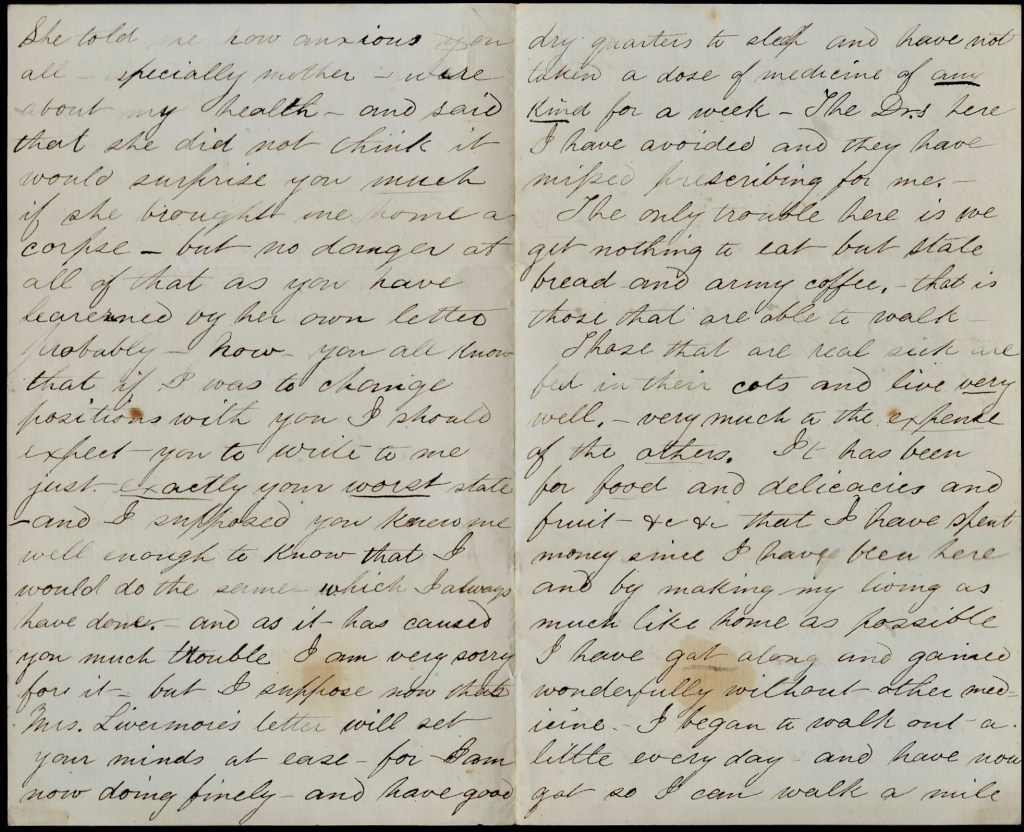 She told me how anxious you
all - especially mother - were
about my health - and said
that she did not think it
would surprise you much
if she brought me home a
corpse - but no danger at
all of that as you have
learened by her own letter
probably - now - you all know
that if I was to change
positions with you I should
expect you to write to me
just exactly your worst state
- and I supposed you knew me
well enough to know that I
would do the same which I always
have done. - and as it has caused
you much trouble I am very sorry
for it - but I suppose now that
Mrs. Livermore's letter will set
your minds at ease - for - I am
now doing finely - and have good
dry quarters to sleep and have not
taken a dose of medicine of any
kind for a week - The Drs here
I have avoided and they have
missed prescribing for me. -
The only trouble here is we
get nothing to eat but stale
bread and army coffee. - that is
those that are able to walk -
Those that are real sick are
fed in their cots and live very
well. - very much to the expense
of the others. It has been
for food and delicacies and
fruit - &c &c that I have spent
money since I have been here
and by making my living as
much like home as possible
I have got along and gained
wonderfully without other med-
icine - I began to walk out a
little every day - and have now
got so I can walk a mile